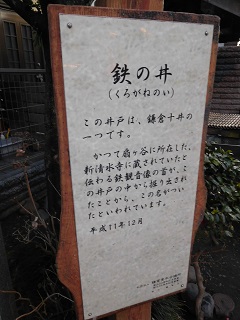 鉄の井
（くろがねのい）
この井戸は、鎌倉十井の
一つです。
かつて扇ヶ谷に所在した、
新清水寺に蔵されていたと
伝わる鉄観音像の首が、こ
の井戸の中から掘り出され
たことから、この名がつい
たといわれています。
平成11年12月